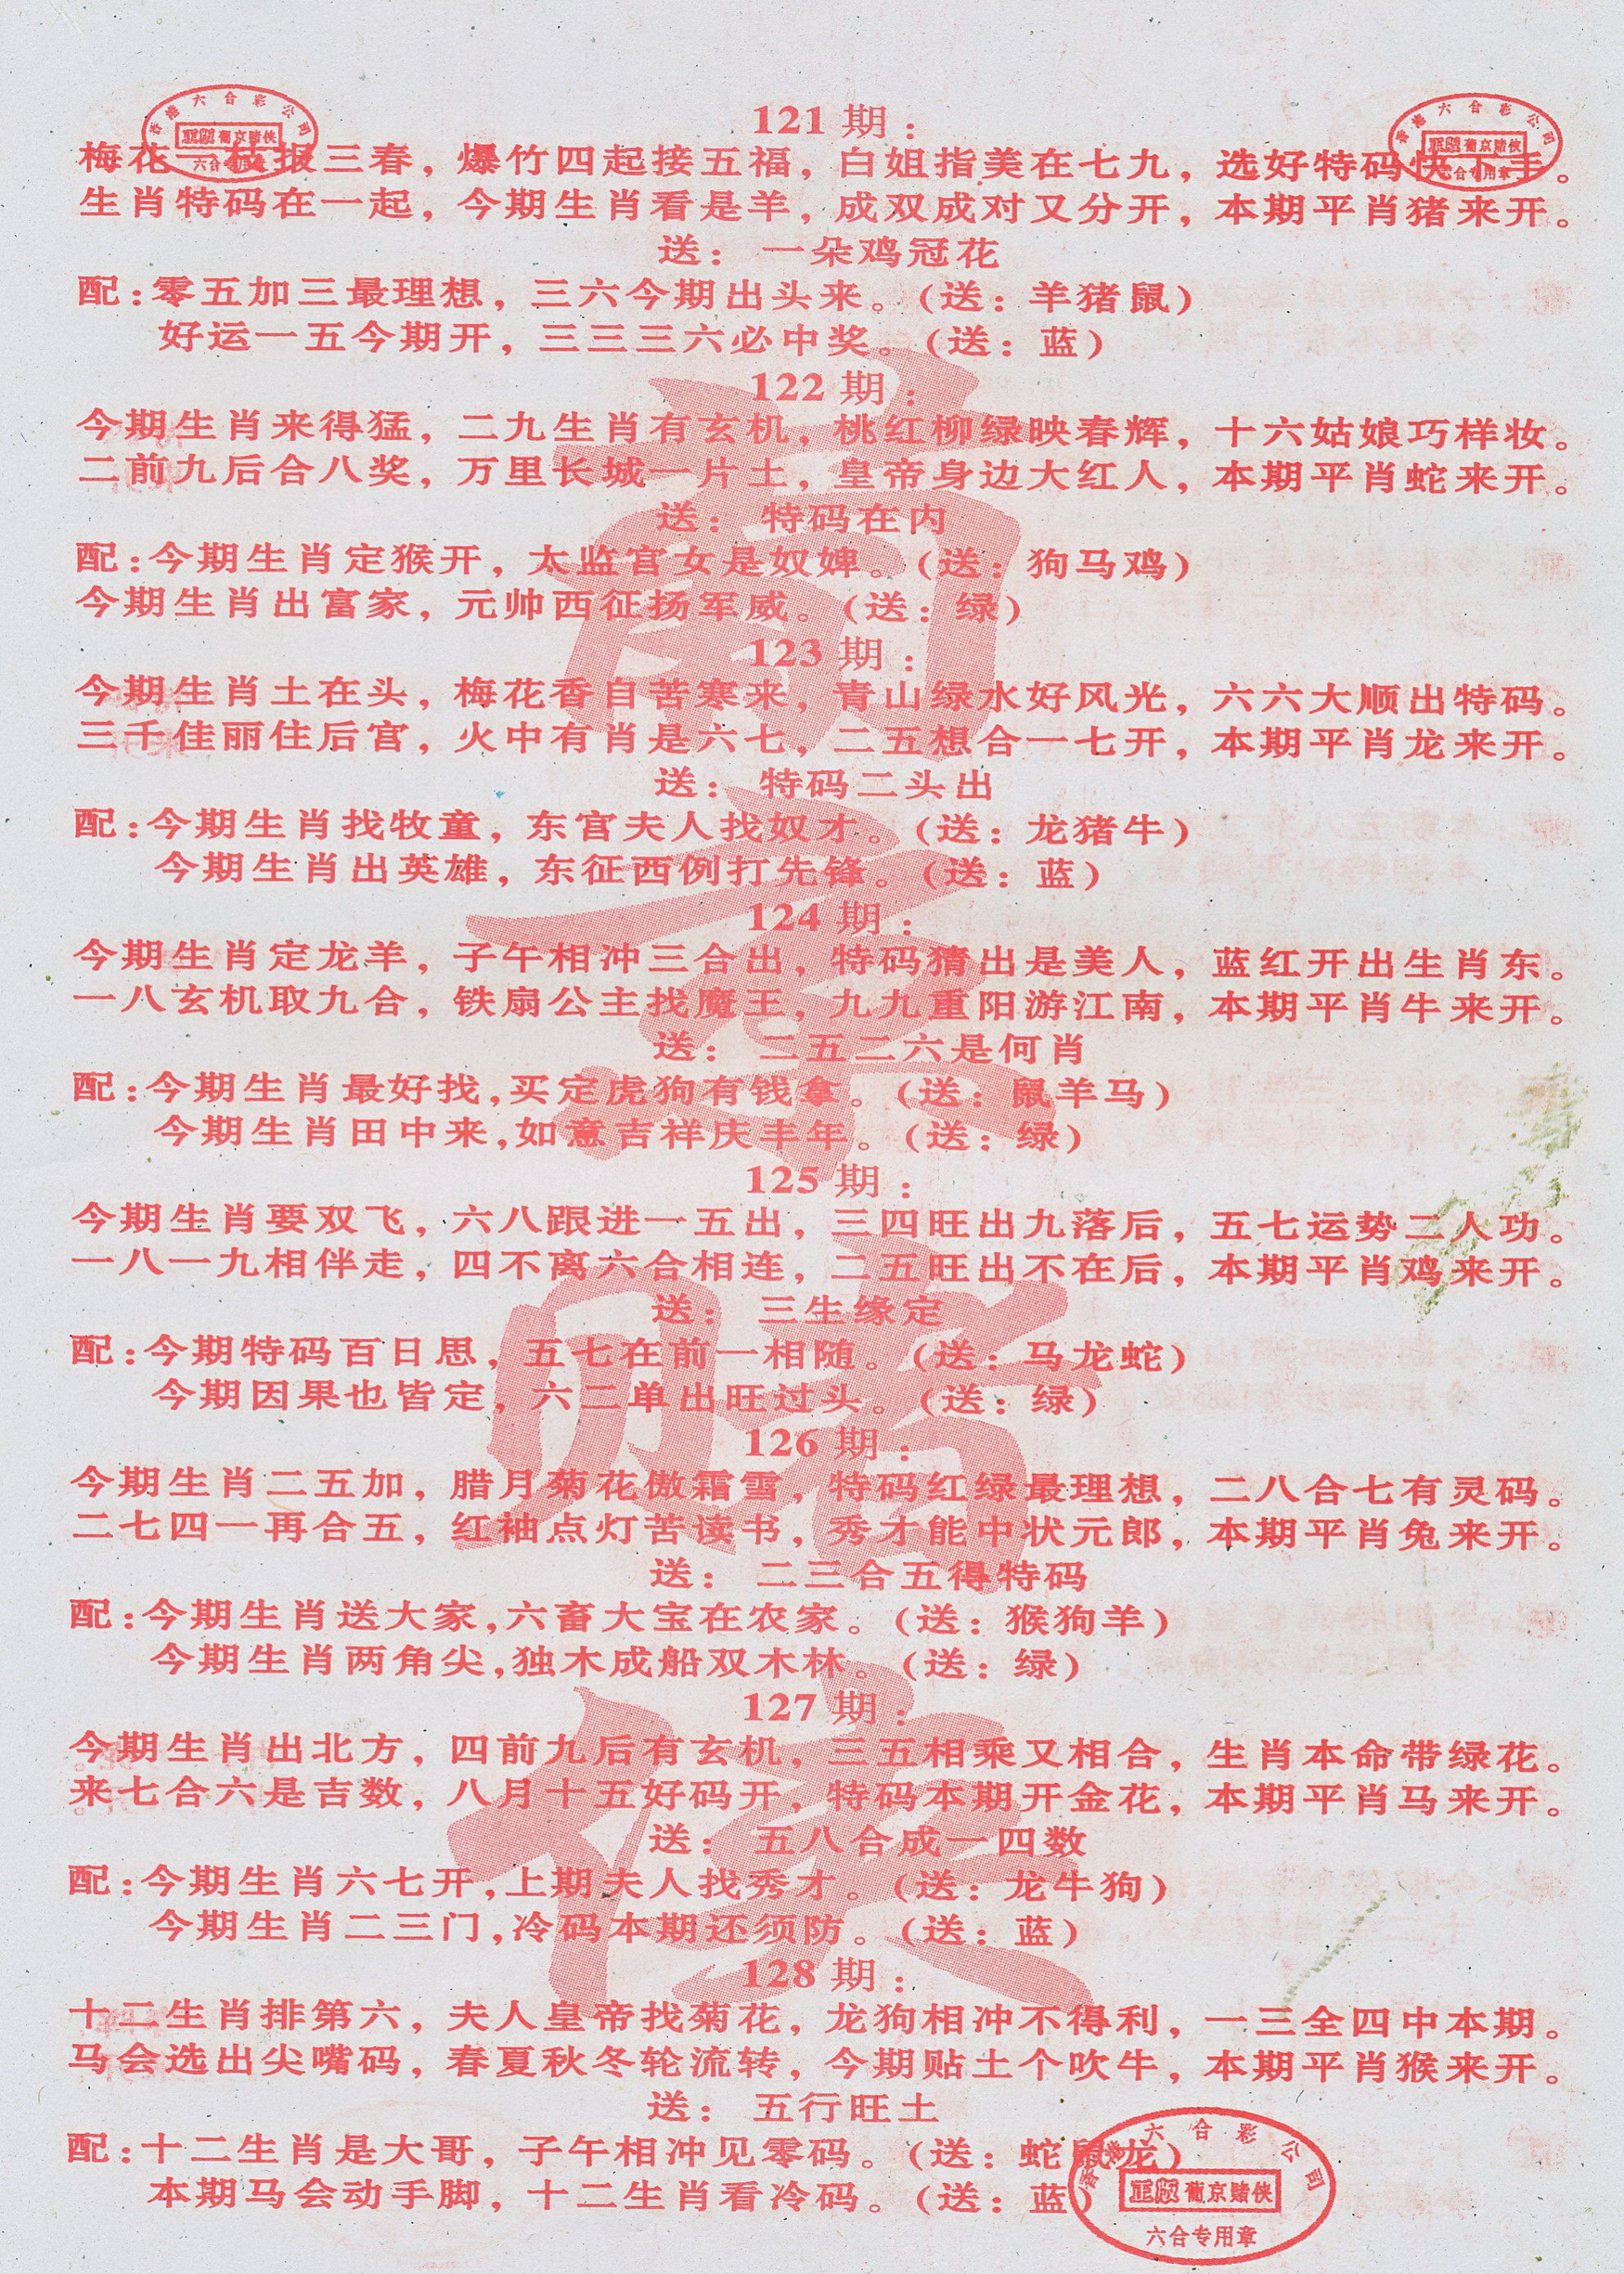 121期：
梅花一枝报三春，爆竹四起接五福，白姐指美在七九，选好特码快下手。
生肖特码在一起，今期生肖看是羊，成双成对又分开，本期平肖猪来开。
送：一朵鸡冠花
配：零五加三最理想，三六今期出头来。（送：羊猪鼠）
好运一五今期开，三三三六必中奖。（送：蓝）
122期：
今期生肖来得猛，二九生肖有玄机，桃红柳绿映春辉，十六姑娘巧样妆。
二前九后合八奖，万里长城一片土，皇帝身边大红人，本期平肖蛇来开。
送：特码在内
配：今期生肖定猴开，太监宫女是奴婢。（送：狗马鸡）
今期生肖出富家，元帅西征扬军威。（送：绿）
123期：
今期生肖土在头，梅花香自苦寒来，青山绿水好风光，六六大顺出特码。
三千佳丽住后宫，火中有肖是六七，二五想合一七开，本期平肖龙来开。
送：特码二头出
配：今期生肖找牧童，东宫夫人找奴才。（送：龙猪牛）
今期生肖出英雄，东征西例打先锋。（送：蓝）
124期：
今期生肖定龙羊，子午相冲三合出，特码猜出是美人，蓝红开出生肖东。
一八玄机取九合，铁扇公主找魔王，九九重阳游江南，本期平肖牛来开。
送：二五二六是何肖
配：今期生肖最好找，买定虎狗有钱拿。（送：鼠羊马）
今期生肖田中来，如意吉祥庆丰年。（送：绿）
125期：
今期生肖要双飞，六八跟进一五出，三四旺出九落后，五七运势二人功。
一八一九相伴走，四不离六合相连，二五旺出不在后，本期平肖鸡来开。
送：三生缘定
配：今期特码百日思，五七在前一相随。（送：马龙蛇）
今期因果也皆定，六二单出旺过头。（送：绿）
126期：
今期生肖二五加，腊月菊花傲霜雪，特码红绿最理想，二八合七有灵码。
二七四一再合五，红袖点灯苦读书，秀才能中状元郎，本期平肖兔来开。
送：二三合五得特码
配：今期生肖送大家，六畜大宝在农家。（送：猴狗羊）
今期生肖两角尖，独木成船双木林。（送：绿）
127期：
今期生肖出北方，四前九后有玄机，三五相乘又相合，生肖本命带绿花。
来七合六是吉数，八月十五好码开，特码本期开金花，本期平肖马来开。
送：五八合成一四数
配：今期生肖六七开，上期夫人找秀才。（送：龙牛狗）
今期生肖二三门，冷码本期还须防。（送：蓝）
128期：
十二生肖排第六，夫人皇帝找菊花，龙狗相冲不得利，一三全四中本期。
马会选出尖嘴码，春夏秋冬轮流转，今期贴土个吹牛，本期平肖猴来开。
送：五行旺土
配：十二生肖是大哥，子午相冲见零码。（送：蛇鼠龙）
本期马会动手脚，十二生肖看冷码。（送：蓝）
香港六合彩公司
葡京赌侠
六合专用章